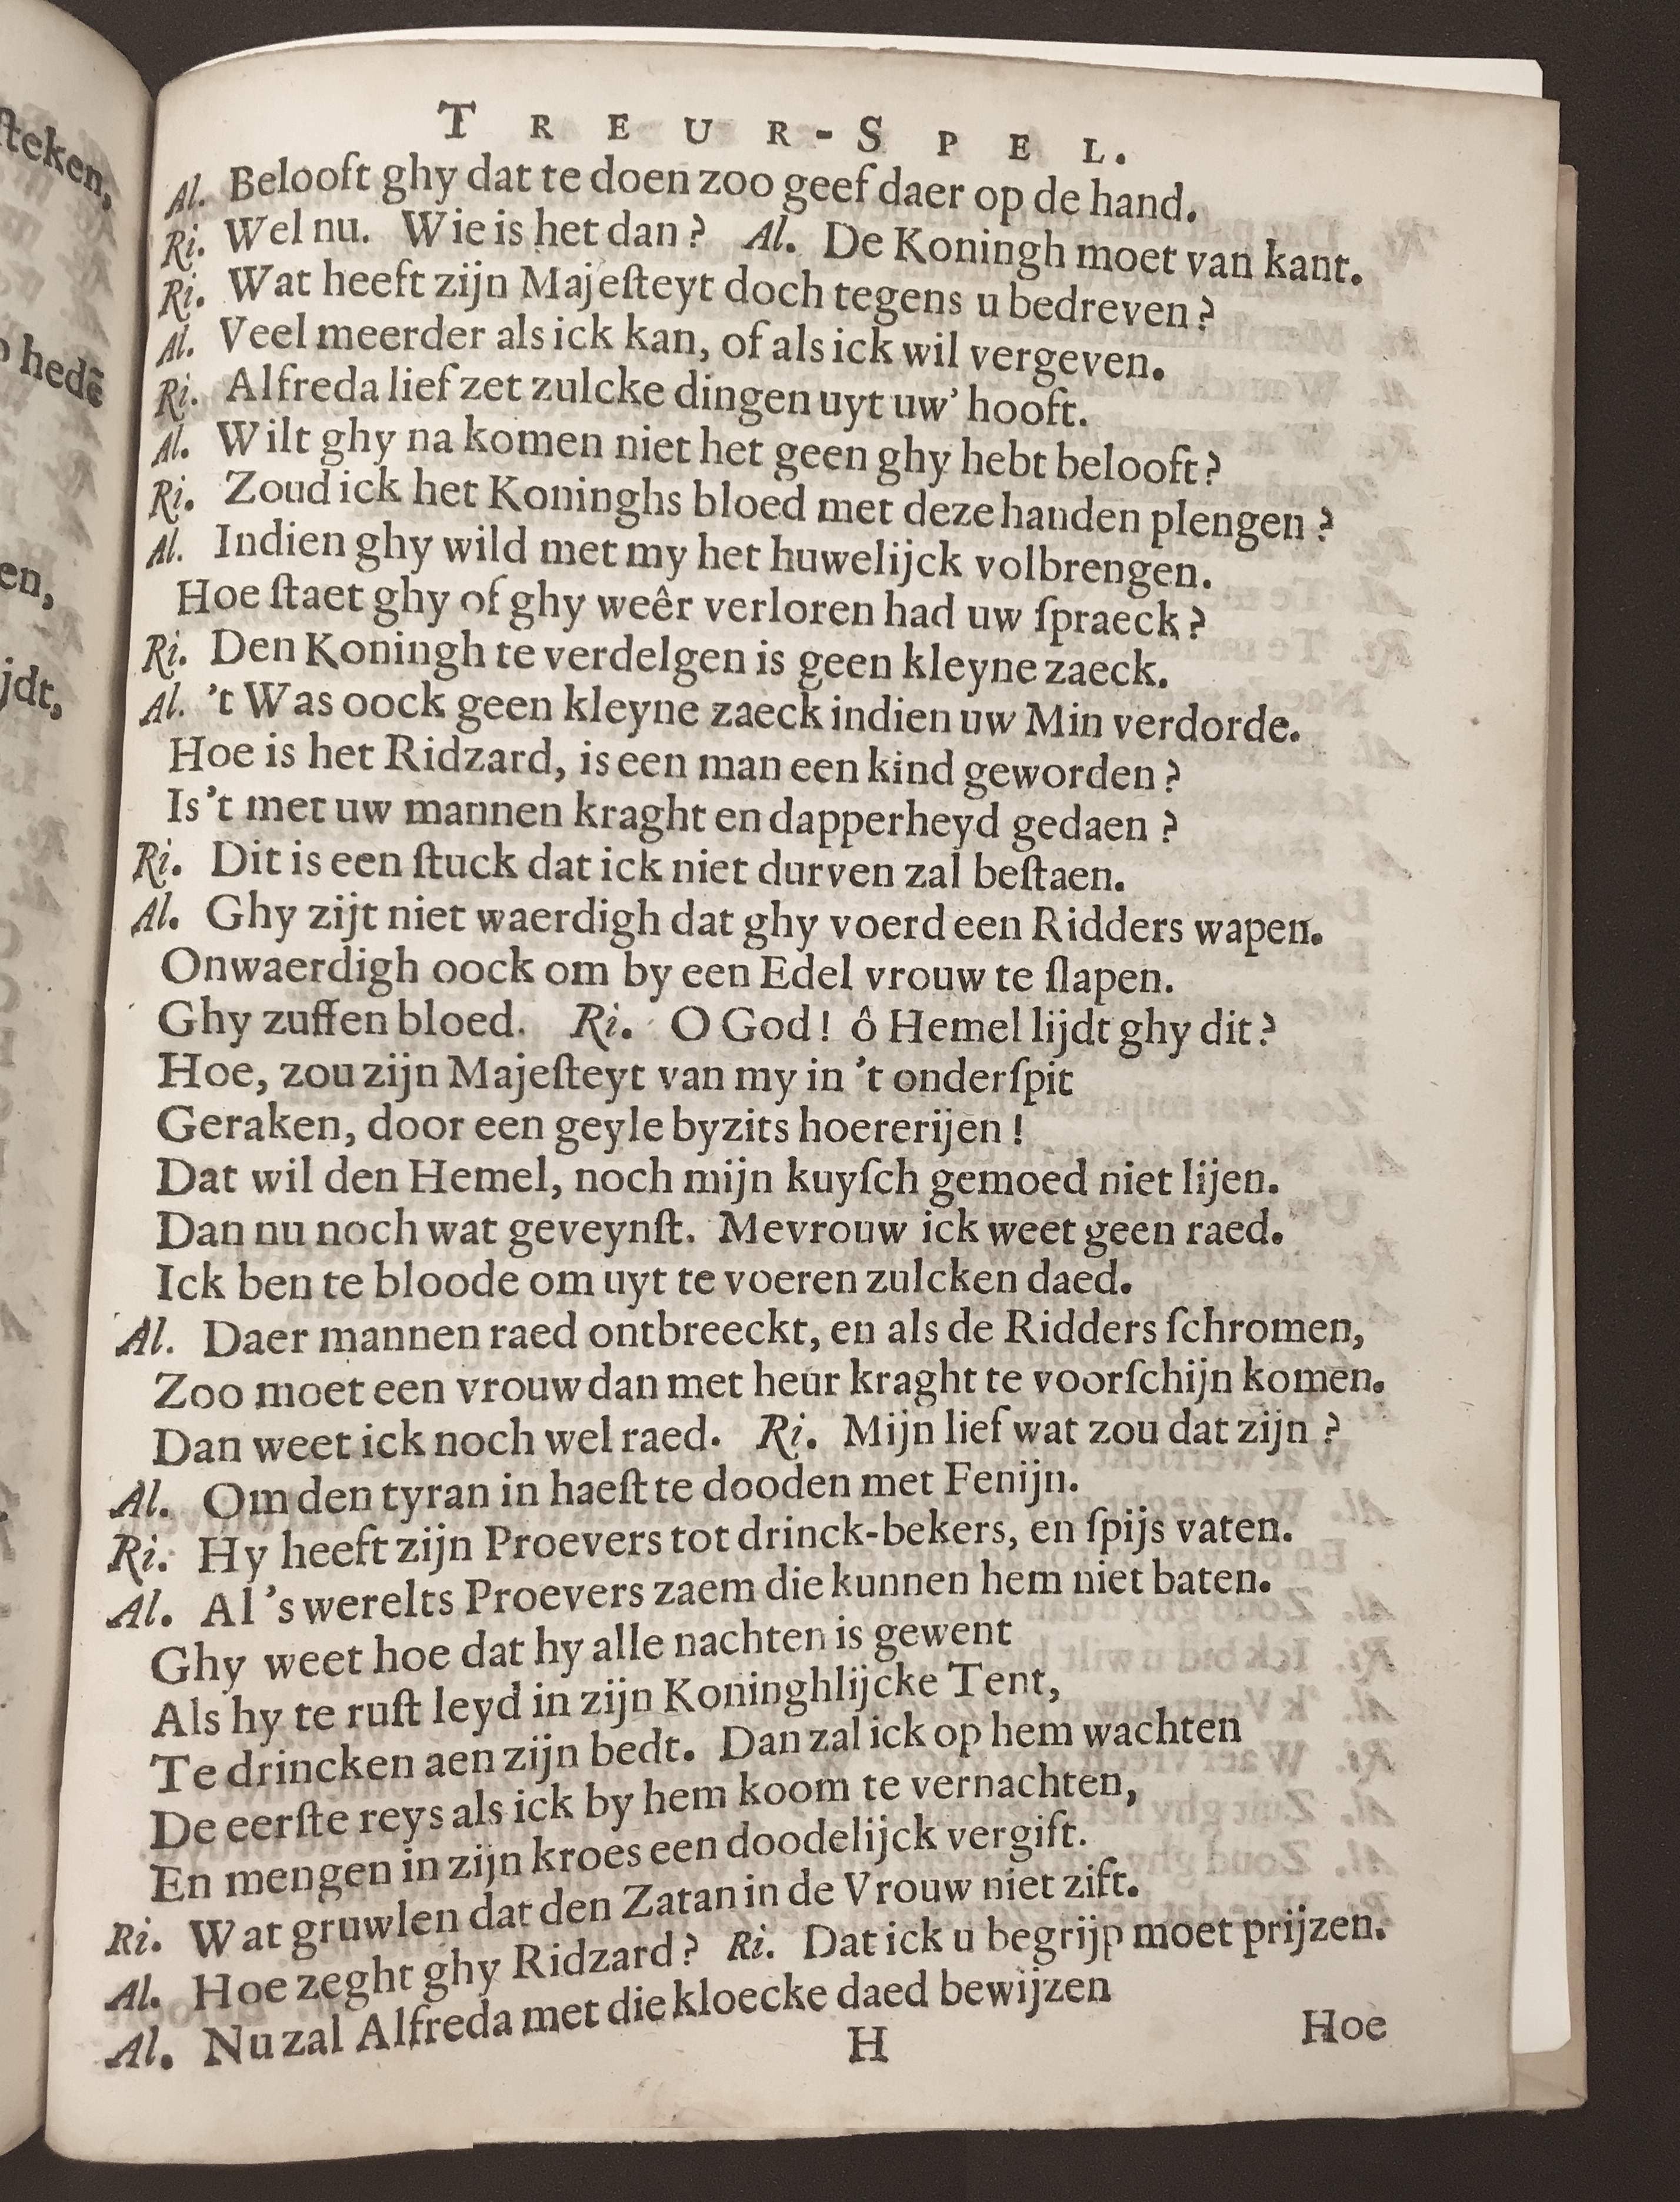 ſteken,
hedē
en,
jdt,
TREUR-SPEL.
Al. Belooft ghy dat te doen zoo geef daer op de hand.
Ri. Wel nu. Wie is het dan? Al. De Koningh moet van kant.
Ri. Wat heeft zijn Majeſteyt doch tegens u bedreven?
Al. Veel meerder als ick kan, of als ick wil vergeven.
Ri. Alfreda lief zet zulcke dingen uyt uw' hooft.
Al. Wilt ghy na komen niet het geen ghy hebt belooft?
Ri. Zoud ick het Koninghs bloed met deze handen plengen?
Al. Indien ghy wild met my het huwelijck volbrengen.
Hoe ſtaet ghy of ghy weêr verloren had uw ſpraeck?
Ri. Den Koningh te verdelgen is geen kleyne zaeck.
Al. 't Was oock geen kleyne zaeck indien uw Min verdorde.
Hoe is het Ridzard, is een man een kind geworden?
Is 't met uw mannen kraght en dapperheyd gedaen?
Ri. Dit is een ſtuck dat ick niet durven zal beſtaen.
Al. Ghy zijt niet waerdigh dat ghy voerd een Ridders wapen.
Onwaerdigh oock om by een Edel vrouw te ſlapen.
Ghy zuffen bloed. Ri. O God! ô Hemel lijdt ghy dit?
Hoe, zou zijn Majeſteyt van my in 't onderſpit
Geraken, door een geyle byzits hoererijen!
Dat wil den Hemel, noch mijn kuyſch gemoed niet lijen.
Dan nu noch wat geveynſt. Mevrouw ick weet geen raed.
Ick ben te bloode om uyt te voeren zulcken daed.
Al. Daer mannen raed ontbreeckt, en als de Ridders ſchromen,
Zoo moet een vrouw dan met heur kraght te voorſchijn komen.
Dan weet ick noch wel raed. Ri. Mijn lief wat zou dat zijn?
Al. Om den tyran in haeſt te dooden met Fenijn.
Ri. Hy heeft zijn Proevers tot drinck-bekers, en ſpijs vaten.
Al. Al 's werelts Proevers zaem die kunnen hem niet baten.
Ghy weet hoe dat hy alle nachten is gewent
Als hy te ruſt leyd in zijn Koninghlijcke Tent,
Te drincken aen zijn bedt. Dan zal ick op hem wachten
De eerſte reys als ick by hem koom te vernachten,
En mengen in zijn kroes een doodelijck vergift.
Ri. Wat gruwlen dat den Zatan in de Vrouw niet zift.
Al. Hoe zeght ghy Ridzard? Ri. Dat ick u begrijp moet prijzen.
Al. Nu zal Alfreda met die kloecke daed bewijzen
H
Hoe